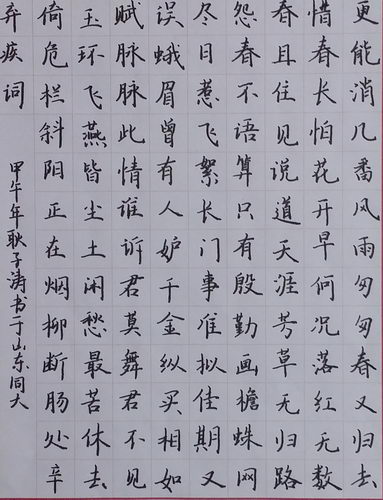 更能消几番风雨匆匆春又归去
惜春长怕花开早何况落红无数
春且住见说道天涯芳草无归路
怨春不语算只有殷勤画檐蛛网
尽日惹飞絮长门事准拟佳期又
误蛾眉曾有人妒千金纵买相如
赋脉脉此情谁诉君莫舞君不见
玉环飞燕皆尘土闲愁最苦休去
倚危栏斜阳正在烟柳断肠处辛
弃疾词
甲午年耿子涛书于山东同大